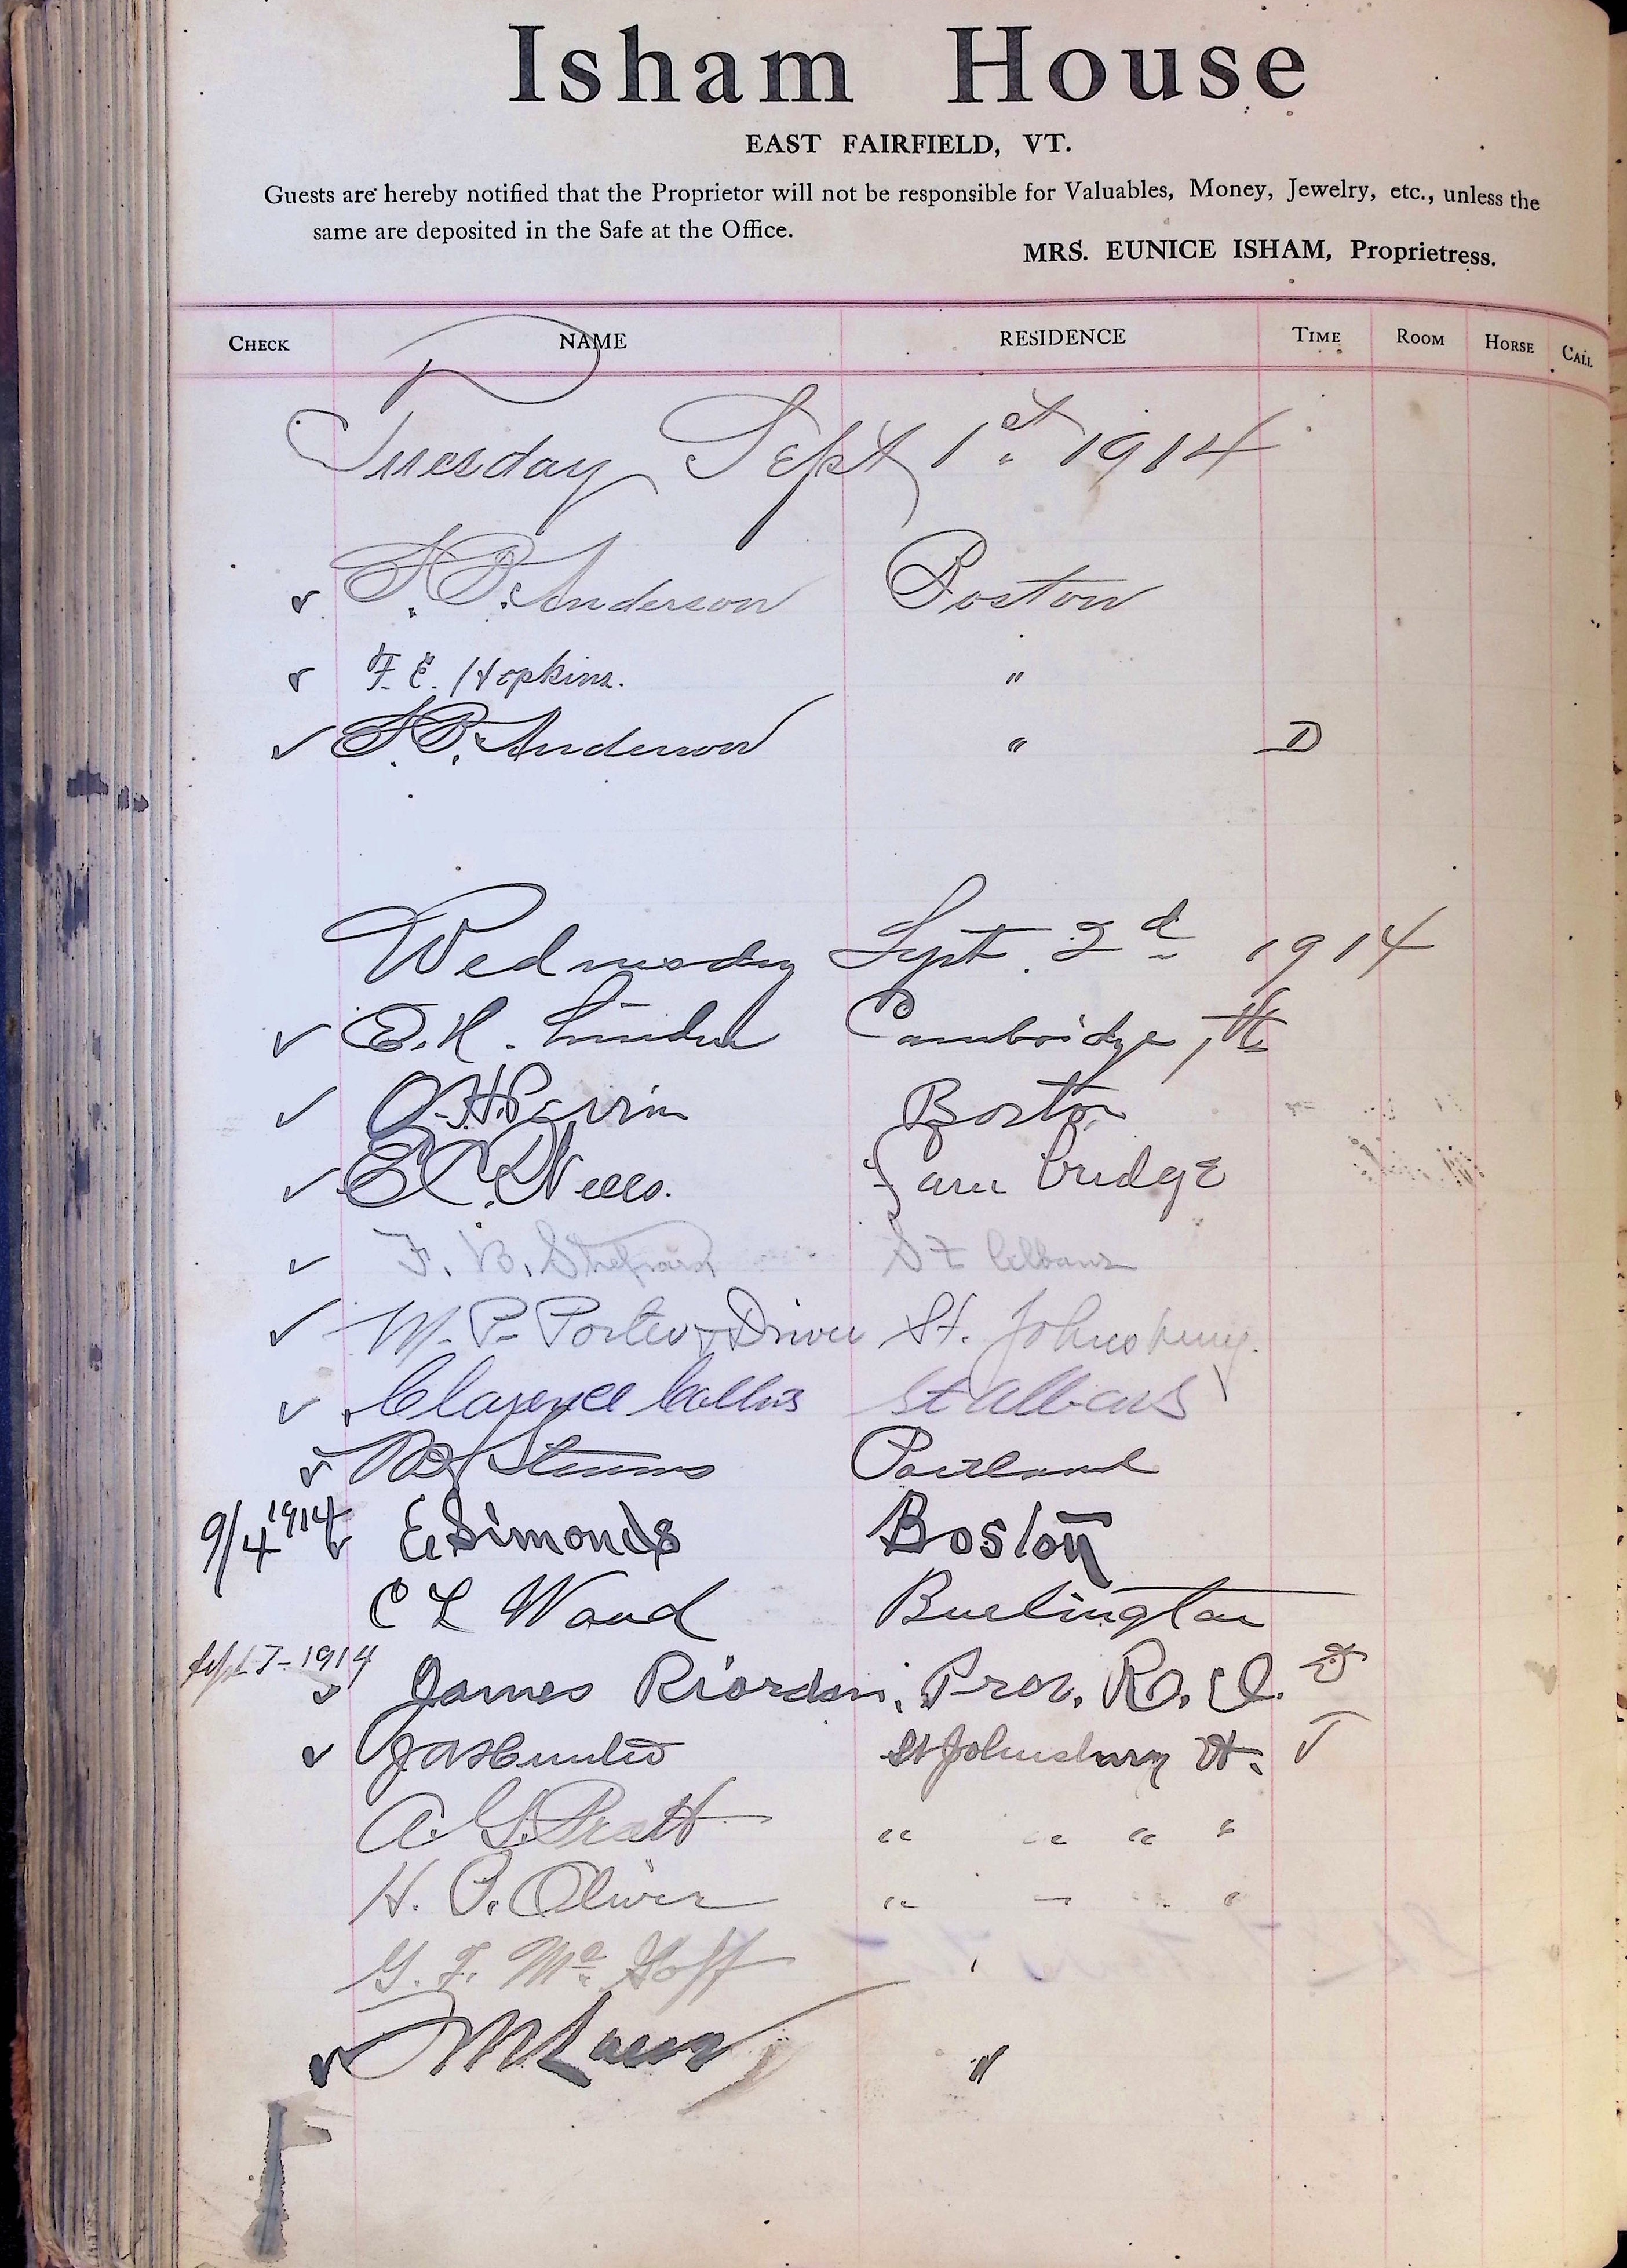 Isham House
EAST FAIRFIELD, VT.
Guests are hereby notified that the Proprietor will not be responsible for Valuables, Money, Jewelry, etc., unless the
same are deposited in the Safe at the Office.
MRS. EUNICE ISHAM, Proprietress.
CHECK NAME RESIDENCE TIME ROOM HORSE CALL
Tuesday Sept 1st 1914
Anderson Boston
F. E. Hopkins. "
Anderson " D
Wednesday Sept. 2d 1914
E. H. Cambridge, Vt
Boston
E C. Wells. Cambridge
F. B. Shepard St Albans
M. P. Porter & Driver St. Johnsbury.
Clarence Collins St Albans
Portland
9/4 1914 E Simonds Boston
C L Wood Burlington
Sept 7-1914 James Riordan. Prov. R. I. D
J A Hunter St Johnsbury Vt. T
A. G. Pratt " " " "
H. P. Oliver " " "
G. F. Mc Goff
"